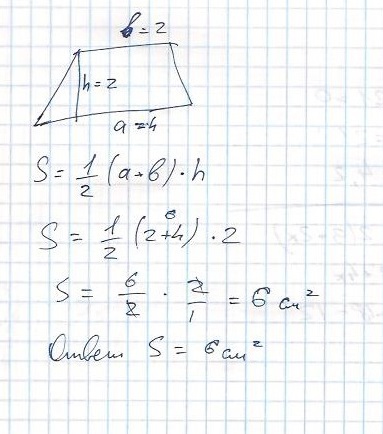 b = 2
h = 2
a = 4
S = 1/2 (a + b) · h
6
S = 1/2 (2 + 4) · 2
S = 6/2 · 2/1 = 6 см²
Ответ S = 6 см²